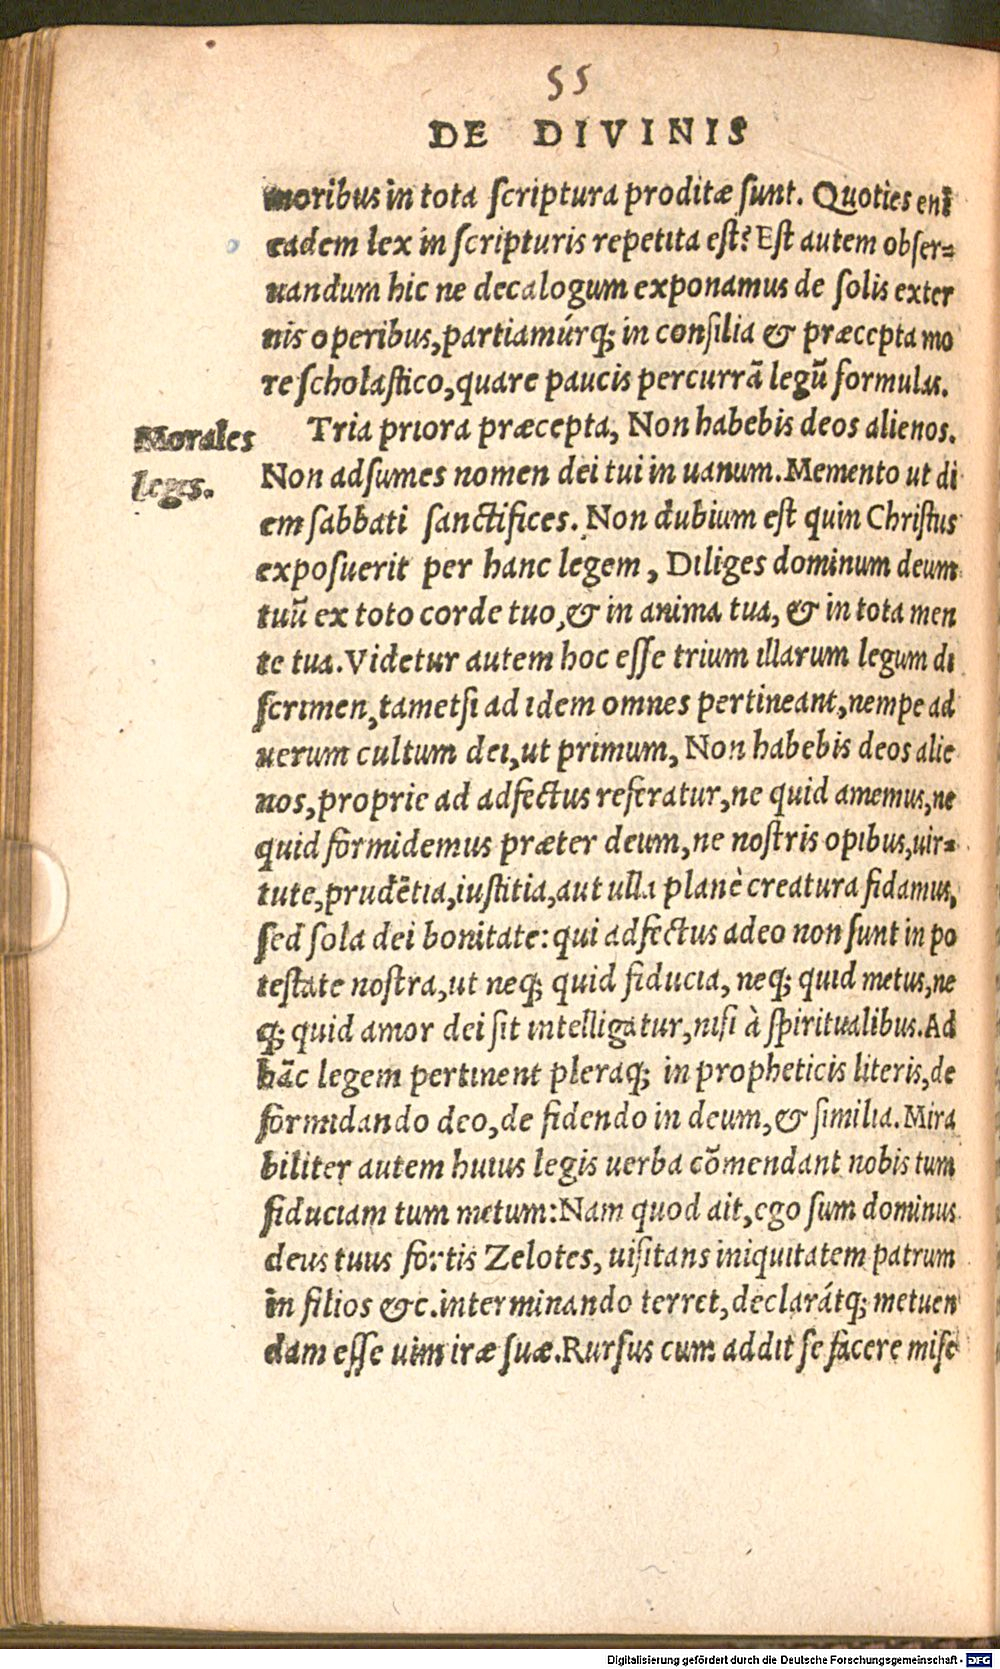 55
DE DIVINIS
moribus in tota scriptura proditæ sunt. Quoties enĩ
eadem lex in scripturis repetita est? Est autem obser-
uandum hic ne decalogum exponamus de solis exter
nis operibus, partiamúrq; in consilia & præcepta mo
re scholastico, quare paucis percurrã legũ formulas.
Morales
leges.
Tria priora præcepta, Non habebis deos alienos.
Non adsumes nomen dei tui in uanum. Memento ut di
em sabbati sanctifices. Non dubium est quin Christus
exposuerit per hanc legem, Diliges dominum deum
tuũ ex toto corde tuo, & in anima tua, & in tota men
te tua. Videtur autem hoc esse trium illarum legum di
scrimen, tametsi ad idem omnes pertineant, nempe ad
uerum cultum dei, ut primum, Non habebis deos alie
nos, proprie ad adfectus referatur, ne quid amemus, ne
quid formidemus præter deum, ne nostris opibus, uir-
tute, prudẽtia, iustitia, aut ulla planè creatura fidamus,
sed sola dei bonitate: qui adfectus adeo non sunt in po
testate nostra, ut neq; quid fiducia, neq; quid metus, ne
q; quid amor dei sit intelligatur, nisi à spiritualibus. Ad
hãc legem pertinent pleraq; in propheticis literis, de
formidando deo, de fidendo in deum, & similia. Mira
biliter autem huius legis uerba cõmendant nobis tum
fiduciam tum metum: Nam quod ait, ego sum dominus
deus tuus fortis Zelotes, uisitans iniquitatem patrum
in filios &c. interminando terret, declarátq; metuen
dam esse uim iræ suæ. Rursus cum addit se facere mise
Digitalisierung gefördert durch die Deutsche Forschungsgemeinschaft - DFG